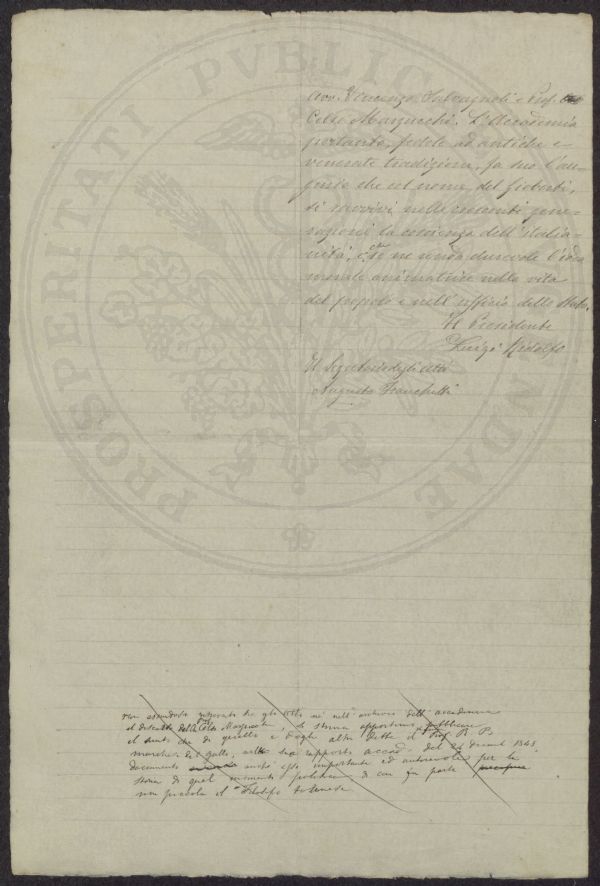 PROSPERITATI PVBLICAE
Avv. Vincenzo Salvagnoli e Prof.
Celso Marzucchi. L'Accademia
pertanto, fedele ad antiche e
venerate tradizioni, fa suo l'au-
gurio che col nome del Gioberti,
si ravvivi nelle crescenti gene-
razioni la coscienza dell'italia-
nità, e ne renda durevole l'idea
morale animatrice nella vita
del popolo e nell'ufficio dello Stato.
Il Presidente
Luigi Ridolfi
Il Segretario degli Atti
Augusto Franchetti
non essendosi tra gli atti nè nell'archivio dell'accademia
il del Celso Marzucchi, si stima opportuno pubblicare
il sunto che di quello e degli altri dette il Prof. B P
marchese del gallo, nel suo rapporto accad. del 24 decemb 1848,
documento anch' esso importante ed autorevole per la
storia di quel momento politico di cui fu parte
non piccola il Filosofo torinese